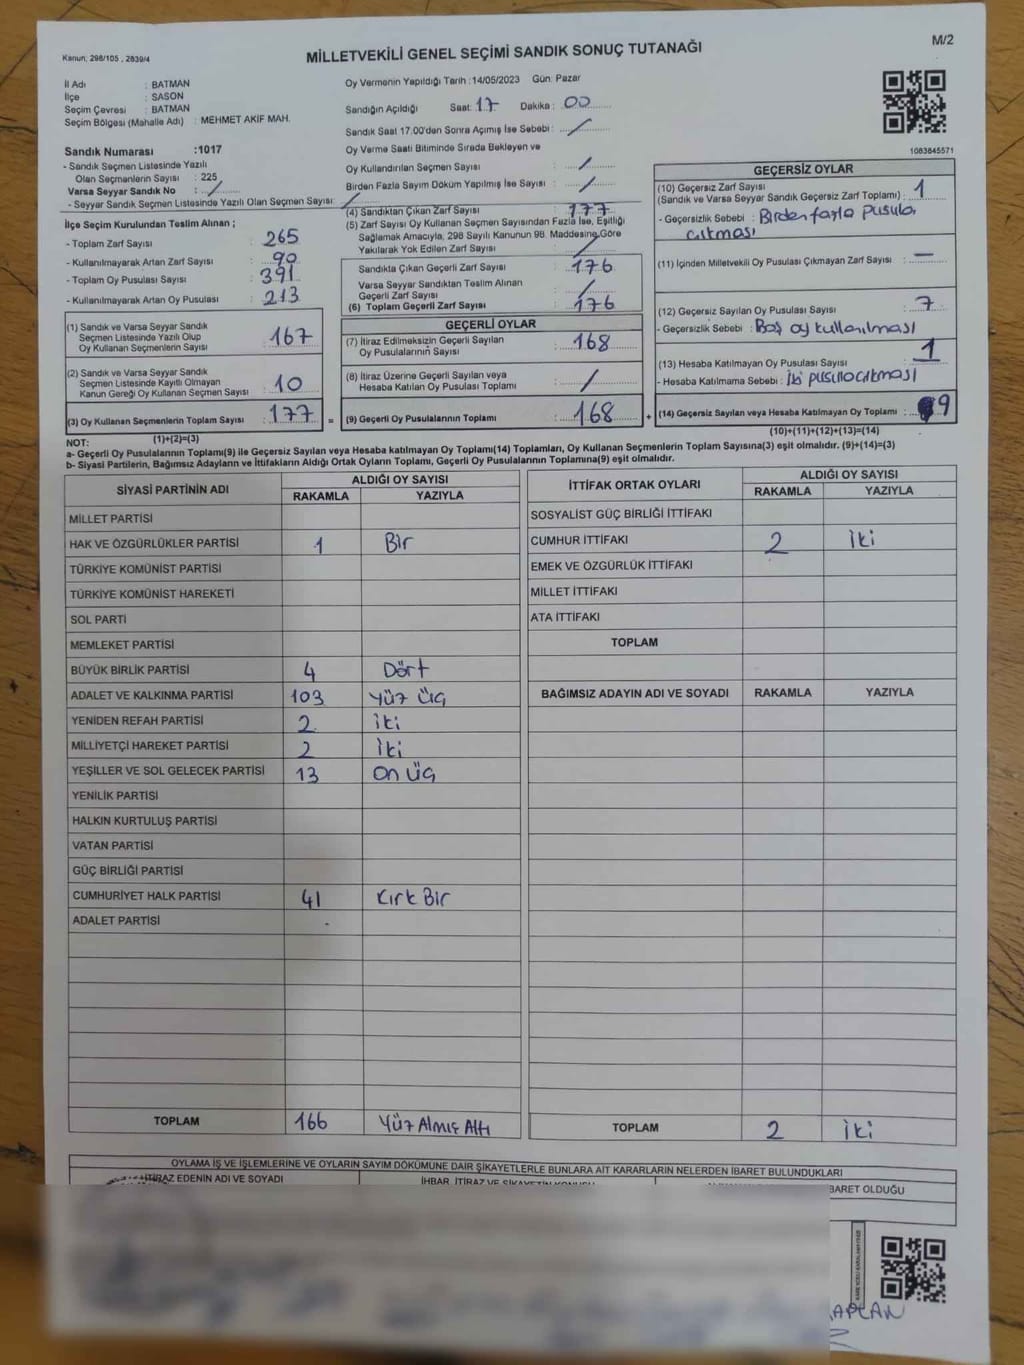 Kanun, 298/105 , 2839/4
MİLLETVEKİLİ GENEL SEÇİMİ SANDIK SONUÇ TUTANAĞI
M/2
İl Adı : BATMAN
İlçe : SASON
Seçim Çevresi : BATMAN
Seçim Bölgesi (Mahalle Adı) : MEHMET AKİF MAH.
Sandık Numarası :1017
- Sandık Seçmen Listesinde Yazılı
Olan Seçmenlerin Sayısı : 225
Varsa Seyyar Sandık No : /
- Seyyar Sandık Seçmen Listesinde Yazılı Olan Seçmen Sayısı: /
Oy Vermenin Yapıldığı Tarih :14/05/2023 Gün: Pazar
Sandığın Açıldığı Saat: 17 Dakika : 00
Sandık Saat 17.00'den Sonra Açımış İse Sebebi : /
Oy Verme Saati Bitiminde Sırada Bekleyen ve
Oy Kullandırılan Seçmen Sayısı : /
Birden Fazla Sayım Döküm Yapılmış İse Sayısı : /
1083845571
İlçe Seçim Kurulundan Teslim Alınan ;
- Toplam Zarf Sayısı : 265
- Kullanılmayarak Artan Zarf Sayısı : 90
- Toplam Oy Pusulası Sayısı : 391
- Kullanılmayarak Artan Oy Pusulası : 213
(1) Sandık ve Varsa Seyyar Sandık
Seçmen Listesinde Yazılı Olup
Oy Kullanan Seçmenlerin Sayısı : 167
(2) Sandık ve Varsa Seyyar Sandık
Seçmen Listesinde Kayıtlı Olmayan
Kanun Gereği Oy Kullanan Seçmen Sayısı : 10
(3) Oy Kullanan Seçmenlerin Toplam Sayısı : 177
(1)+(2)=(3)
(4) Sandıktan Çıkan Zarf Sayısı : 177
(5) Zarf Sayısı Oy Kullanan Seçmen Sayısından Fazla İse, Eşitliği
Sağlamak Amacıyla, 298 Sayılı Kanunun 98. Maddesine Göre
Yakılarak Yok Edilen Zarf Sayısı : /
Sandıkta Çıkan Geçerli Zarf Sayısı : 176
Varsa Seyyar Sandıktan Teslim Alınan
Geçerli Zarf Sayısı : /
(6) Toplam Geçerli Zarf Sayısı : 176
GEÇERLİ OYLAR
(7) İtiraz Edilmeksizin Geçerli Sayılan
Oy Pusulalarının Sayısı : 168
(8) İtiraz Üzerine Geçerli Sayılan veya
Hesaba Katılan Oy Pusulası Toplamı : /
= (9) Geçerli Oy Pusulalarının Toplamı : 168
GEÇERSİZ OYLAR
(10) Geçersiz Zarf Sayısı
(Sandık ve Varsa Seyyar Sandık Geçersiz Zarf Toplamı) : 1
- Geçersizlik Sebebi : Birden fazla pusula
çıkması
(11) İçinden Milletvekili Oy Pusulası Çıkmayan Zarf Sayısı : —
(12) Geçersiz Sayılan Oy Pusulası Sayısı : 7
- Geçersizlik Sebebi : Boş oy kullanılması
(13) Hesaba Katılmayan Oy Pusulası Sayısı : 1
- Hesaba Katılmama Sebebi : İki pusula çıkması
+ (14) Geçersiz Sayılan veya Hesaba Katılmayan Oy Toplamı : 9
(10)+(11)+(12)+(13)=(14)
NOT:
a- Geçerli Oy Pusulalarının Toplamı(9) ile Geçersiz Sayılan veya Hesaba katılmayan Oy Toplamı(14) Toplamları, Oy Kullanan Seçmenlerin Toplam Sayısına(3) eşit olmalıdır. (9)+(14)=(3)
b- Siyasi Partilerin, Bağımsız Adayların ve İttifakların Aldığı Ortak Oyların Toplamı, Geçerli Oy Pusulalarının Toplamına(9) eşit olmalıdır.
SİYASİ PARTİNİN ADI ALDIĞI OY SAYISI
RAKAMLA YAZIYLA
MİLLET PARTİSİ
HAK VE ÖZGÜRLÜKLER PARTİSİ 1 Bir
TÜRKİYE KOMÜNİST PARTİSİ
TÜRKİYE KOMÜNİST HAREKETİ
SOL PARTİ
MEMLEKET PARTİSİ
BÜYÜK BİRLİK PARTİSİ 4 Dört
ADALET VE KALKINMA PARTİSİ 103 Yüz Üç
YENİDEN REFAH PARTİSİ 2 İki
MİLLİYETÇİ HAREKET PARTİSİ 2 İki
YEŞİLLER VE SOL GELECEK PARTİSİ 13 On Üç
YENİLİK PARTİSİ
HALKIN KURTULUŞ PARTİSİ
VATAN PARTİSİ
GÜÇ BİRLİĞİ PARTİSİ
CUMHURİYET HALK PARTİSİ 41 Kırk Bir
ADALET PARTİSİ
TOPLAM 166 Yüz Almış Altı
İTTİFAK ORTAK OYLARI ALDIĞI OY SAYISI
RAKAMLA YAZIYLA
SOSYALİST GÜÇ BİRLİĞİ İTTİFAKI
CUMHUR İTTİFAKI 2 İki
EMEK VE ÖZGÜRLÜK İTTİFAKI
MİLLET İTTİFAKI
ATA İTTİFAKI
TOPLAM
BAĞIMSIZ ADAYIN ADI VE SOYADI RAKAMLA YAZIYLA
TOPLAM 2 İki
OYLAMA İŞ VE İŞLEMLERİNE VE OYLARIN SAYIM DÖKÜMÜNE DAİR ŞİKAYETLERLE BUNLARA AİT KARARLARIN NELERDEN İBARET BULUNDUKLARI
İTİRAZ EDENİN ADI VE SOYADI
İHBAR, İTİRAZ VE ŞİKAYETİN KONUSU
BARET OLDUĞU
APLAN